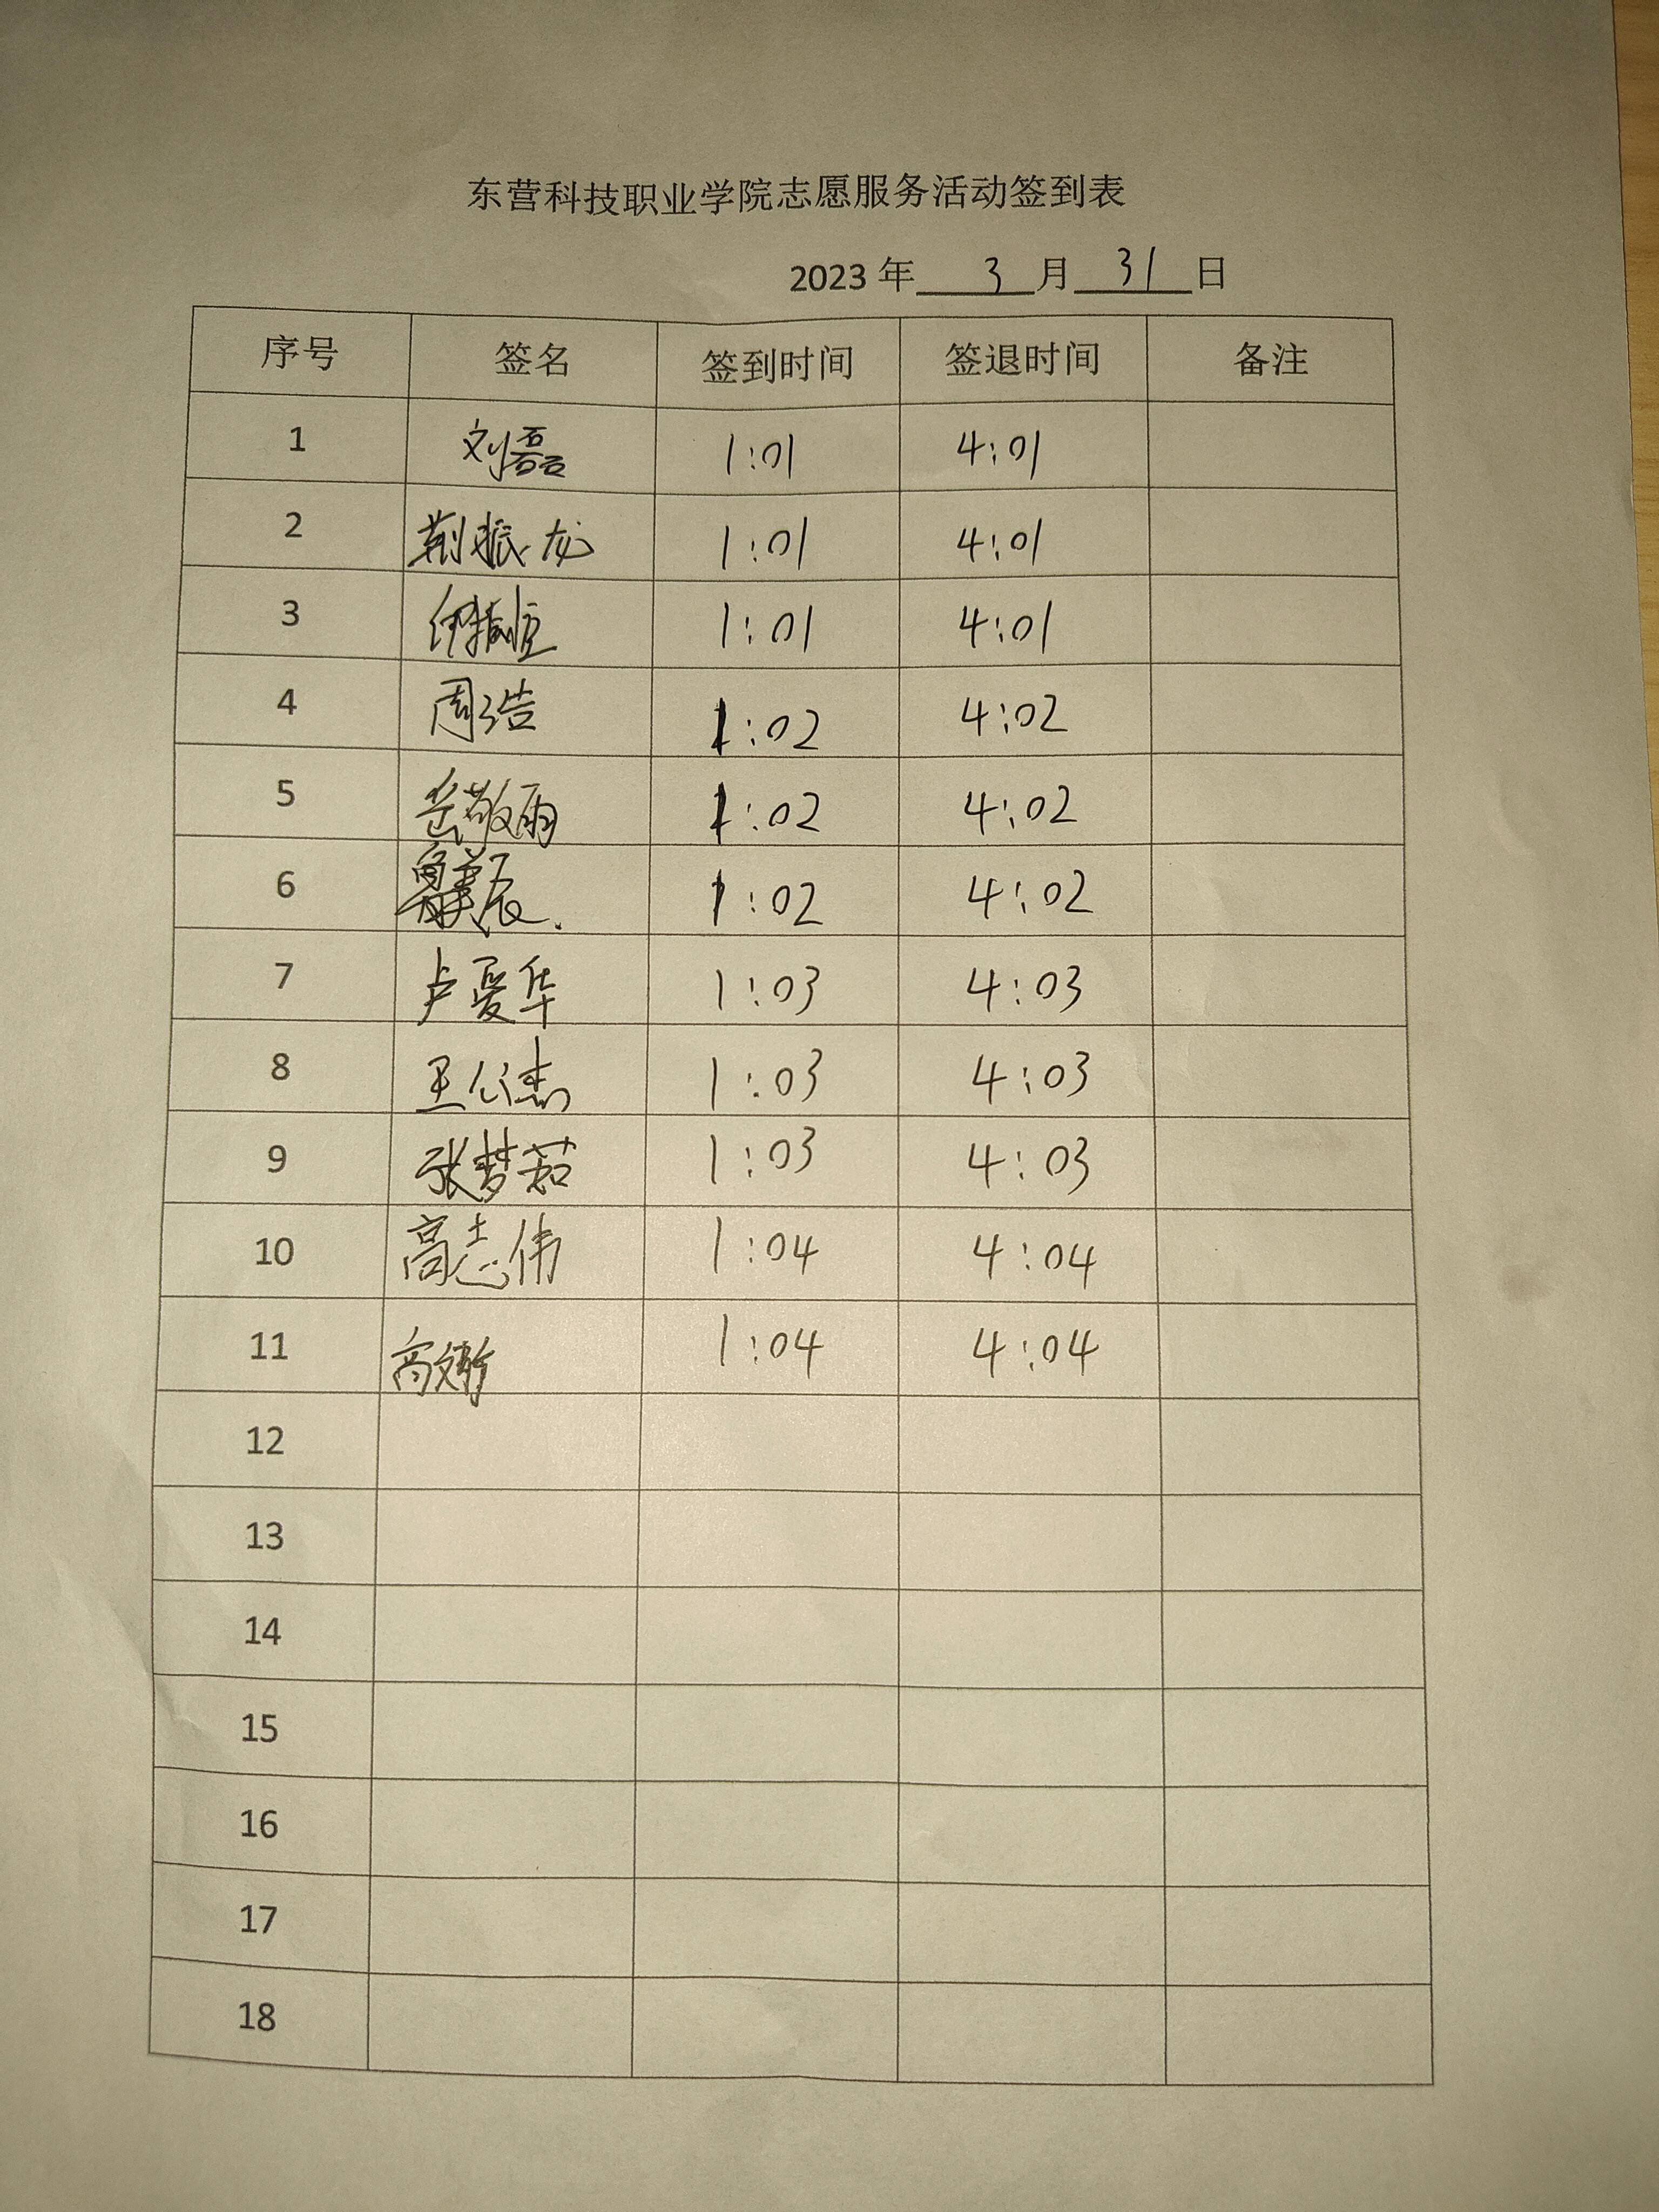 东营科技职业学院志愿服务活动签到表
2023 年 3 月 31 日
序号 签名 签到时间 签退时间 备注
1 刘磊 1:01 4:01
2 荆振龙 1:01 4:01
3 1:01 4:01
4 周浩 1:02 4:02
5 岳敬雨 1:02 4:02
6 1:02 4:02
7 卢爱华 1:03 4:03
8 王公杰 1:03 4:03
9 张梦茹 1:03 4:03
10 高志伟 1:04 4:04
11 1:04 4:04
12
13
14
15
16
17
18